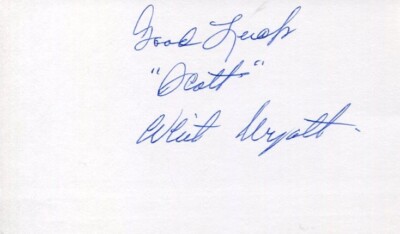 Good Luck
"Scott"
Whit Wyatt.